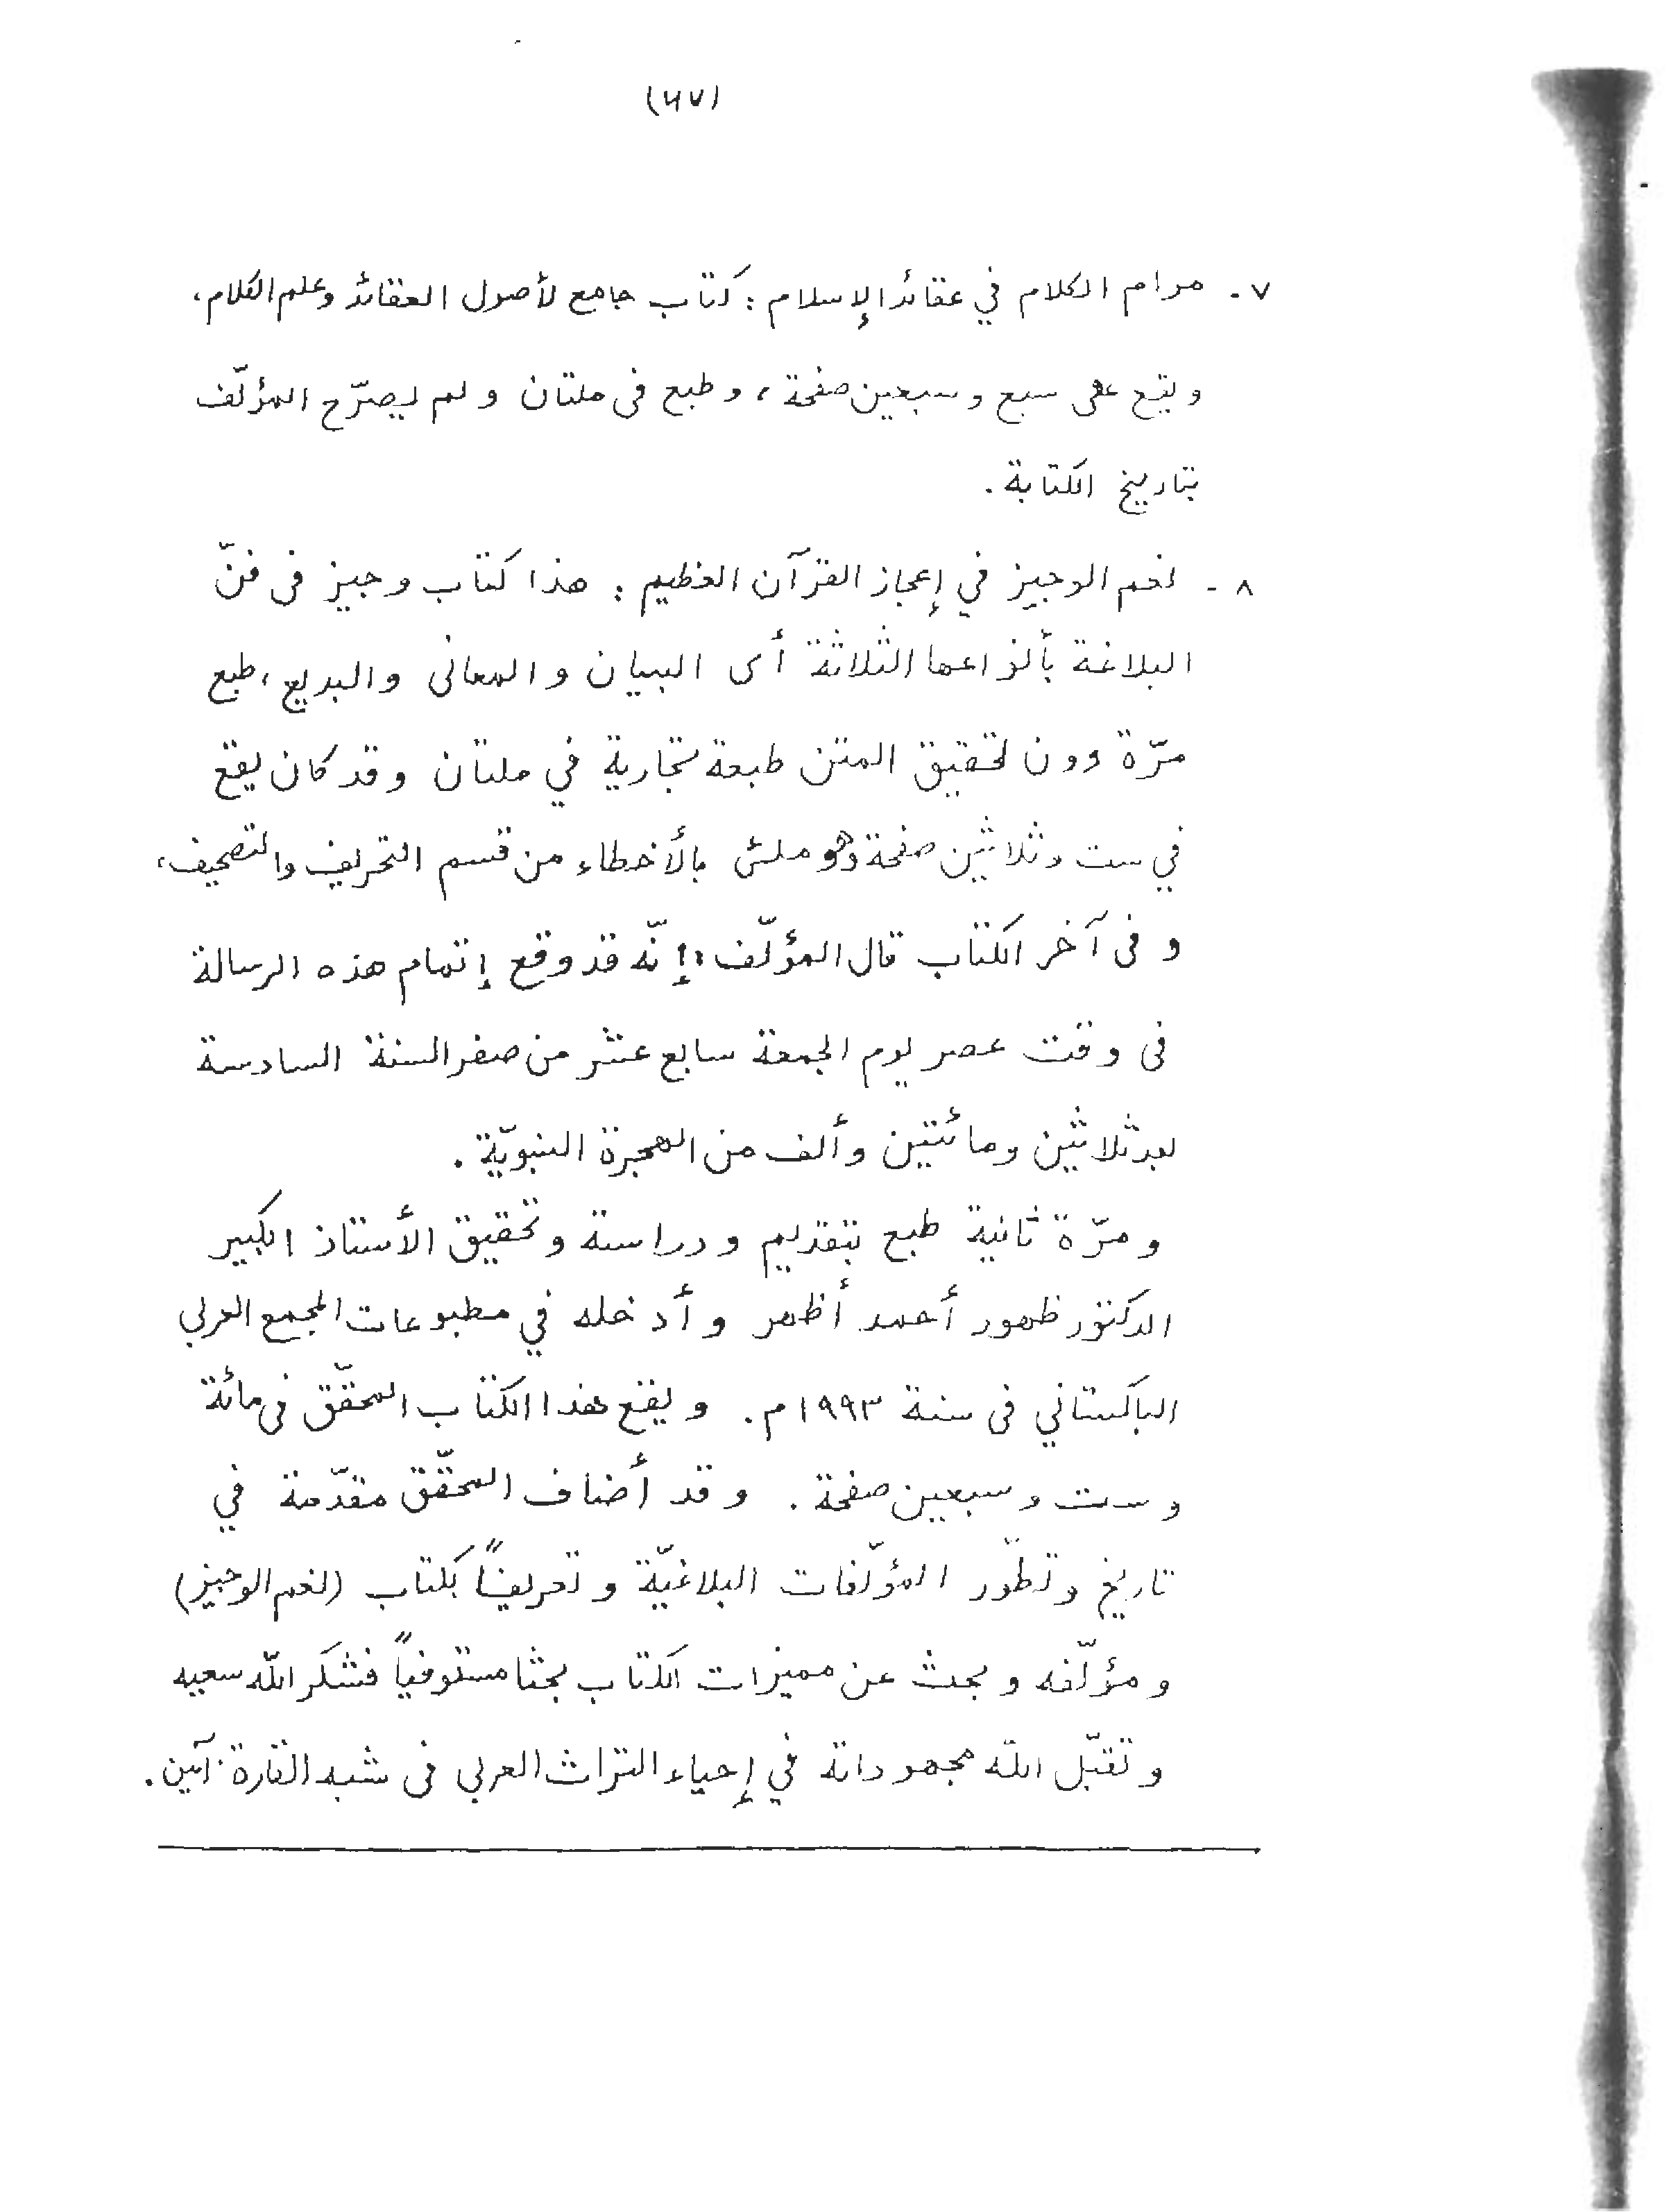 (٦٧)
٧. مرام الكلام في عقائد الإسلام : كتاب جامع لأصول العقائد وعلم الكلام،
ويقع على سبع وسبعين صفحة، وطبع فى ملتان ولم يصرّح المؤلّف
بتاريخ الكتابة.
٨ - نعم الوجيز في إعجاز القرآن العظيم : هذا كتاب وجيز فى فنّ
البلاغة بأنواعها الثلاثة أى البيان والمعانى والبديع، طبع
مرّة دون تحقيق المتن طبعة تجارية في ملتان وقد كان يقع
في ست وثلاثين صفحة وهو ملئ بالأخطاء من قسم التحريف والتصحيف،
و فى آخر الكتاب قال المؤلّف "إنّه قد وقع إتمام هذه الرسالة
فى وقت عصر يوم الجمعة سابع عشر من صفر السنة السادسة
بعد ثلاثين ومائتين وألف من الهجرة النبويّة.
و مرّة ثانية طبع بتقديم ودراسة وتحقيق الأستاذ الكبير
الدكتور ظهور أحمد أظهر وأدخله في مطبوعات المجمع العربي
الباكستاني فى سنة ١٩٩٣م. ويقع هذا الكتاب المحقّق فى مائة
وست وسبعين صفحة. وقد أضاف المحقّق مقدّمة في
تاريخ وتطوّر المؤلّفات البلاغيّة وتعريفاً بكتاب (نعم الوجيز)
و مؤلّفه وبحث عن مميزات الكتاب بحثا مستوفياً فشكر الله سعيه
و تقبّل الله مجهوداته في إحياء التراث العربى فى شبه القارة. آمين.